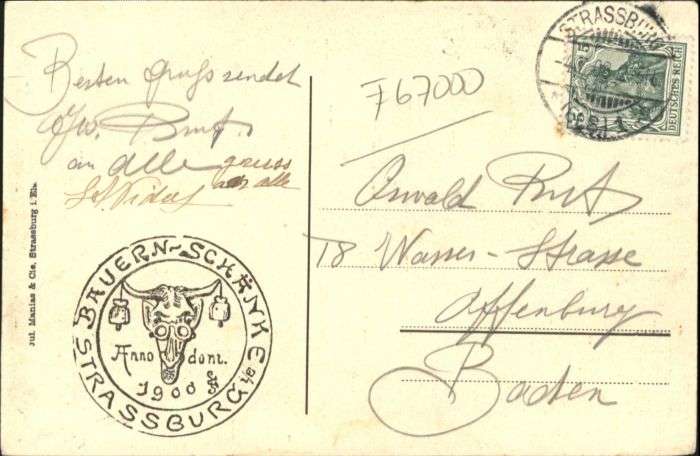 Besten Gruss sendet
an alle gruss
an alle
Jul. Manias & Cie. Strassburg i. Els.
BAUERN-SCHÄNKE
STRASSBURG i/E
Anno dom.
1900
F67000
STRASSBURG
DEUTSCHES REICH
5
Oswald
18 Wasser-Strasse
Offenburg
Baden